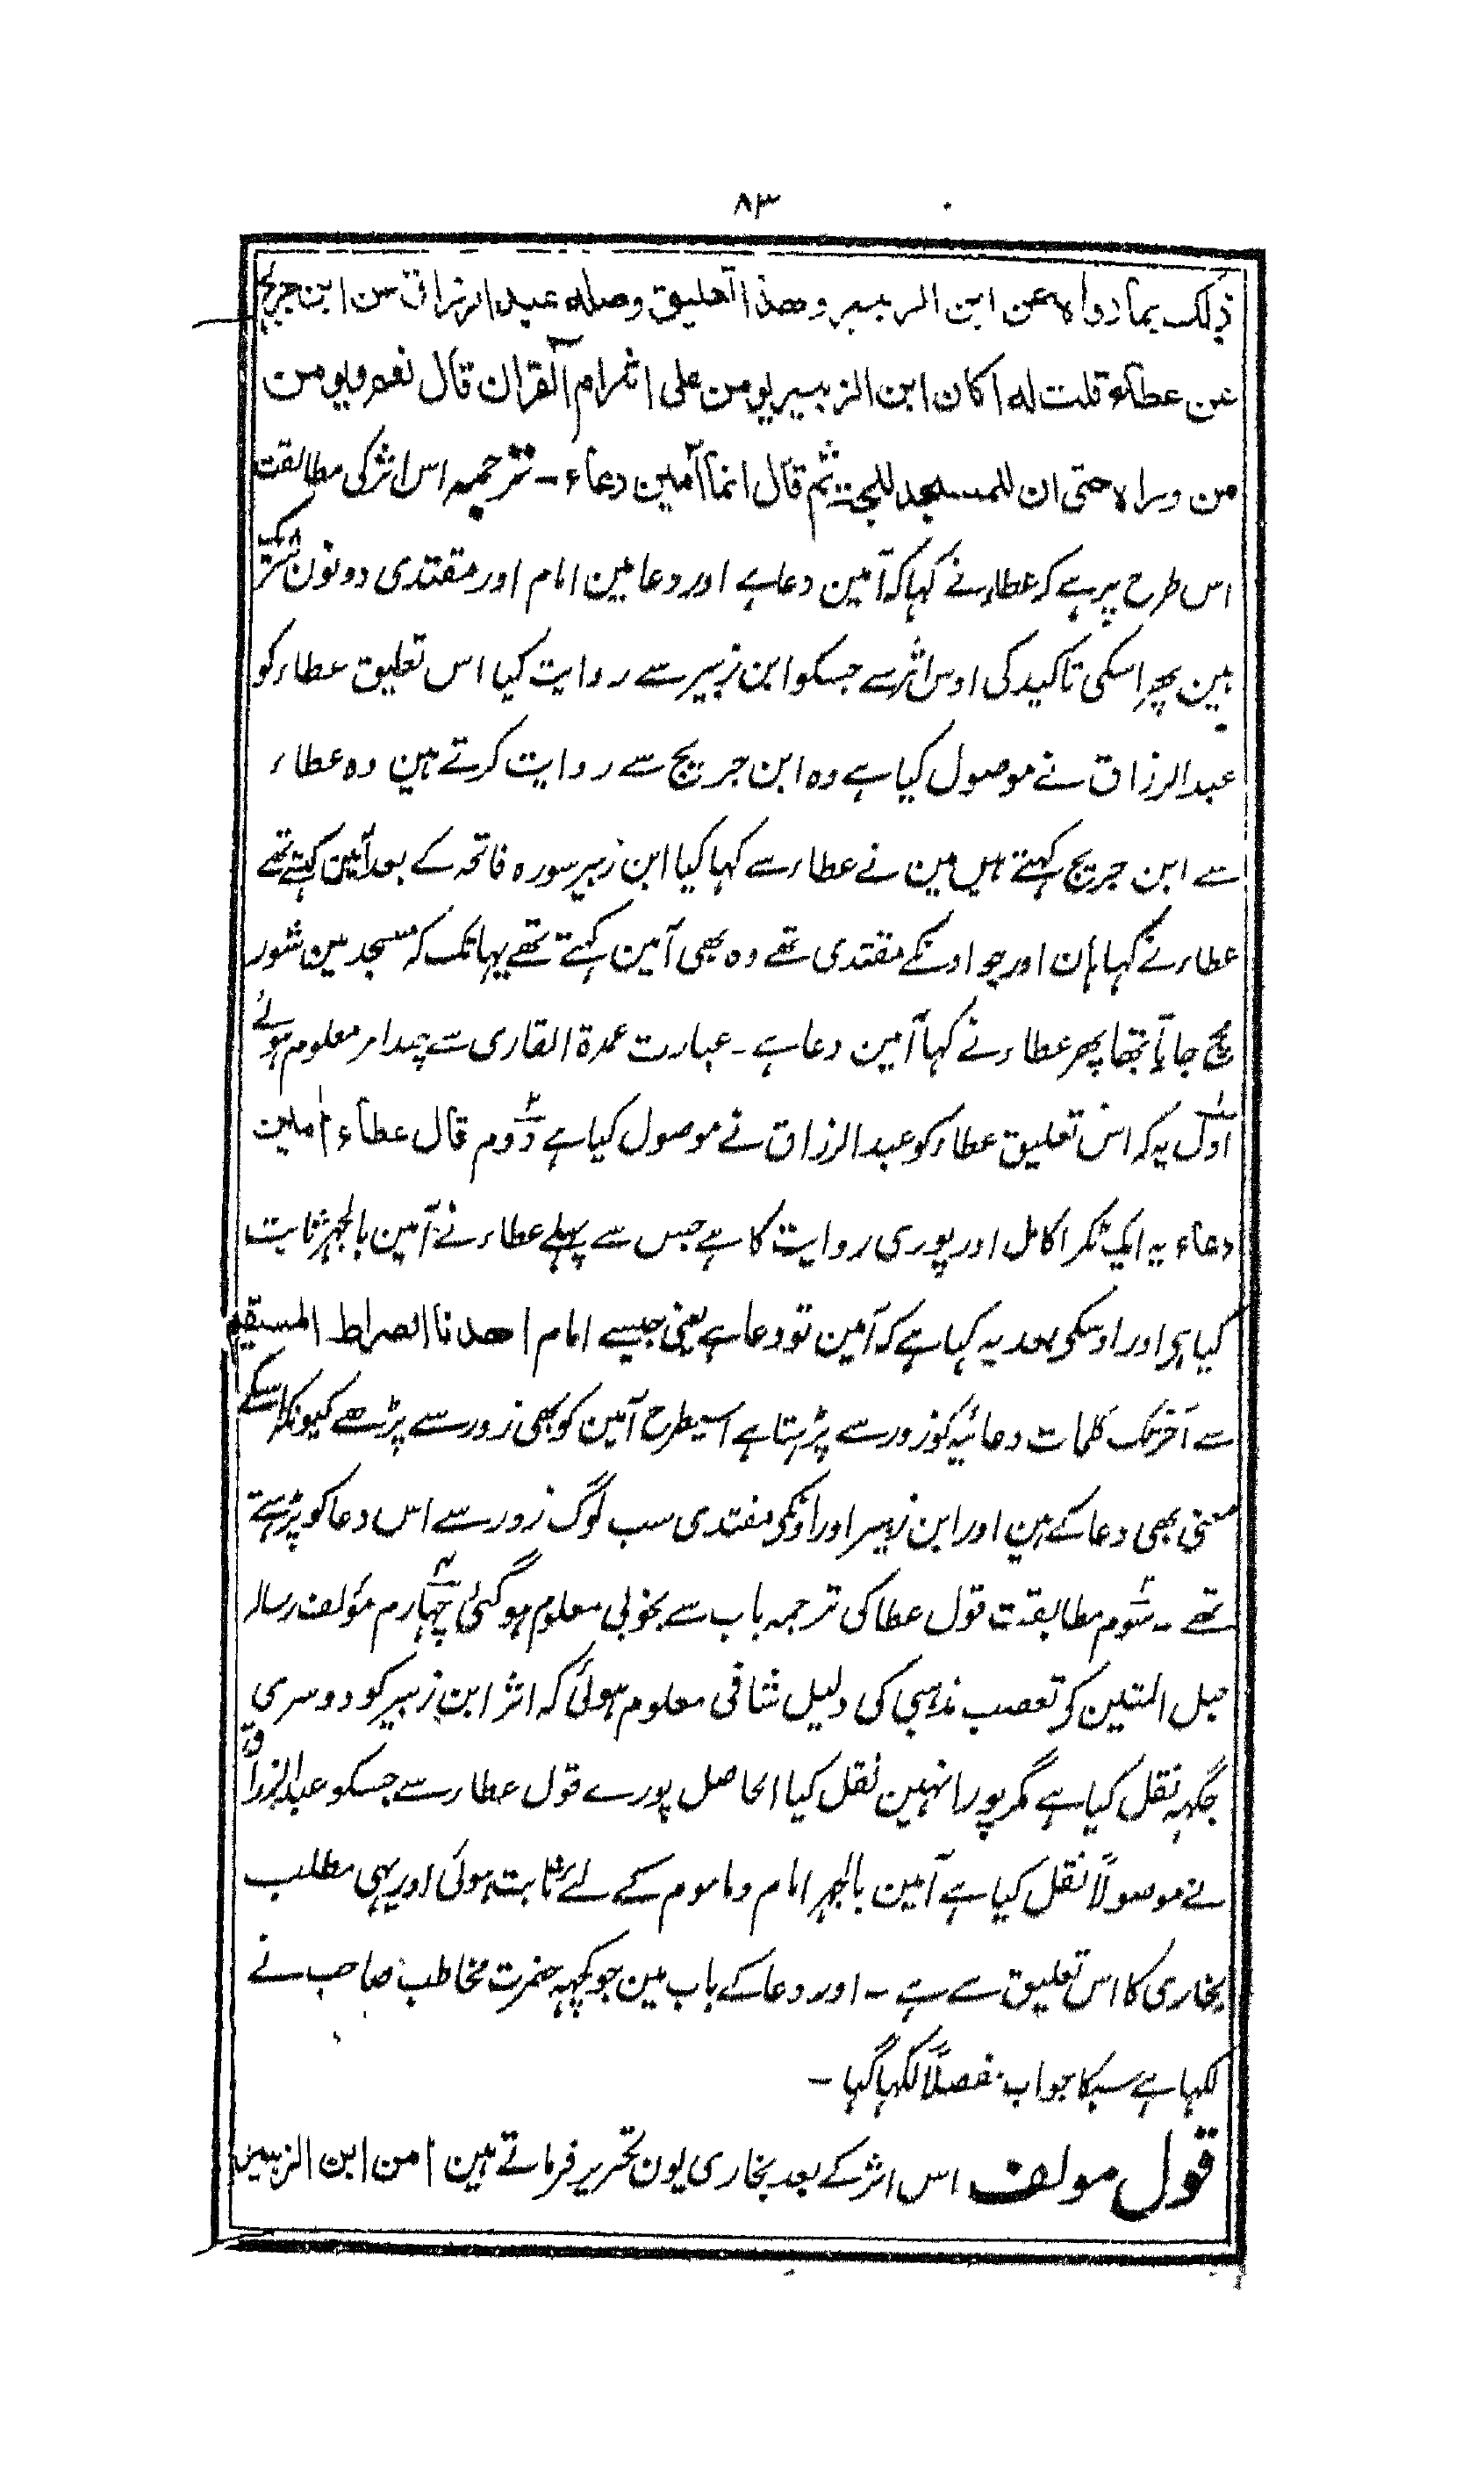 ۸۳
ذلک بما رواه عن ابن الزبیر وهذا التعلیق وصله عبد الرزاق عن ابن جریج
عن عطاء قلت له اکان ابن الزبیر یومن علی اثر ام القران قال نعم ویومن
من وراه حتی ان للمسجد للجة ثم قال انما آمین دعاء ـ ترجمہ اس اثر کی مطابقت
اس طرح پر ہے کہ عطاء نے کہا کہ آمین دعا ہے اور دعا مین امام اور مقتدی دونون شریک
ہین پھر اسکی تاکید کی اوس اثر سے جسکو ابن زبیر سے روایت کیا اس تعلیق عطاء کو
عبدالرزاق نے موصول کیا ہے وہ ابن جریج سے روایت کرتے ہین وہ عطاء
سے ابن جریج کہتے ہیں مین نے عطاء سے کہا کیا ابن زبیر سورہ فاتحہ کے بعد آمین کہتے تھے
عطاء نے کہا ہان اور جو اونکے مقتدی تھے وہ بھی آمین کہتے تھے یہانتک کہ مسجد مین شور
مچ جاتا تھا پھر عطاء نے کہا آمین دعا ہے ـ عبارت عمدۃ القاری سے چند امر معلوم ہوئے
اول یہ کہ اس تعلیق عطاء کو عبد الرزاق نے موصول کیا ہے دوم قال عطاء اٰمین
دعاء یہ ایک ٹکڑا کامل اور پوری روایت کا ہے جس سے پہلے عطاء نے آمین بالجہر ثابت
کیا ہی اور اوسکی بعد یہ کہا ہے کہ آمین تو دعا ہے یعنی جیسے امام اهدنا الصراط المستقیم
سے آخر تک کلمات دعائیہ کو زور سے پڑہتا ہے اسیطرح آمین کو بھی زور سے پڑھے کیونکہ اسکے
معنی بھی دعا کے ہین اور ابن زبیر اور اونکی مقتدی سب لوگ زور سے اس دعا کو پڑہتے
تھے ـ سوم مطابقت قول عطا کی ترجمہ باب سے بخوبی معلوم ہو گئی چہارم مؤلف رسالہ
حبل المتین کی تعصب مذہبی کی دلیل شافی معلوم ہوئی کہ اثر ابن زبیر کو دوسری
جگہہ نقل کیا ہے مگر پورا نہین نقل کیا الحاصل پورے قول عطاء سے جسکو عبدالرزاق
نے موصولاً نقل کیا ہے آمین بالجہر امام و ماموم کے لئے ثابت ہوئی اور یہی مطلب
بخاری کا اس تعلیق سے ہے ـ اور دعا کے باب مین جو کچہہ حضرت مخاطب صاحب نے
لکہا ہے سبکا جواب مفصلاً لکہا گیا ـ
قول مولف اس اثر کے بعد بخاری یون تحریر فرماتے ہین امن ابن الزبیر